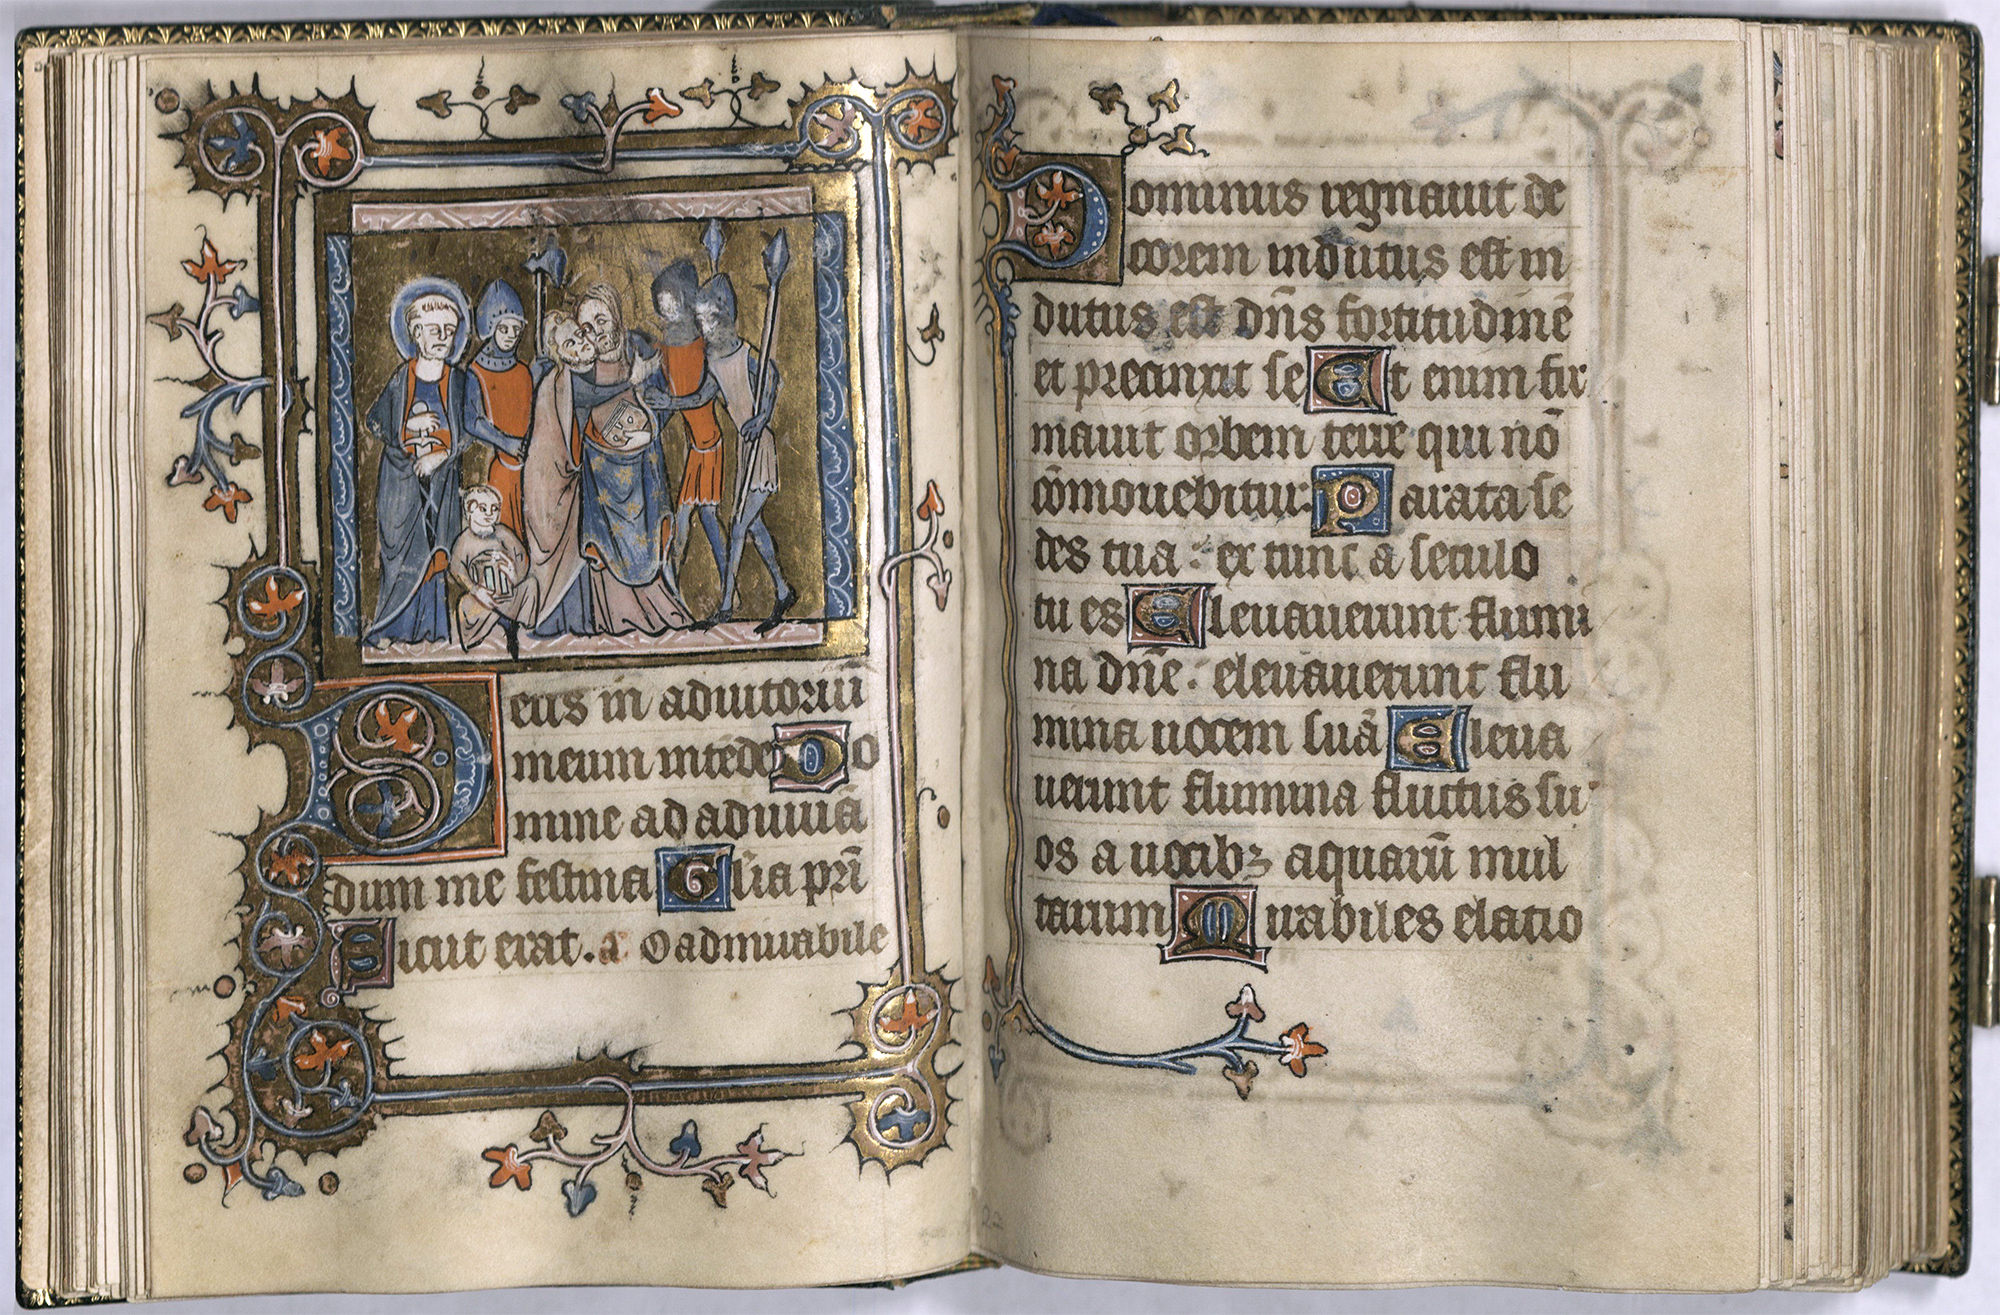 Deus in adiutoriū
meum intēde Do
mine ad adiuuā
dum me festina Gl'ia pr̄i
Sicut erat. a̅ O admirabile
Dominus regnauit de
corem indutus est in
dutus est dn̄s fortitudinē
et precinxit se Et enim fir
mauit orbem terre qui nō
cōmouebitur. Parata se
des tua : ex tunc a seculo
tu es Eleuauerunt flumi
na dn̄e : eleuauerunt flu
mina uocem suā Eleua
uerunt flumina fluctus su
os a uocibꝫ aquarū mul
tarum Mirabiles elatio